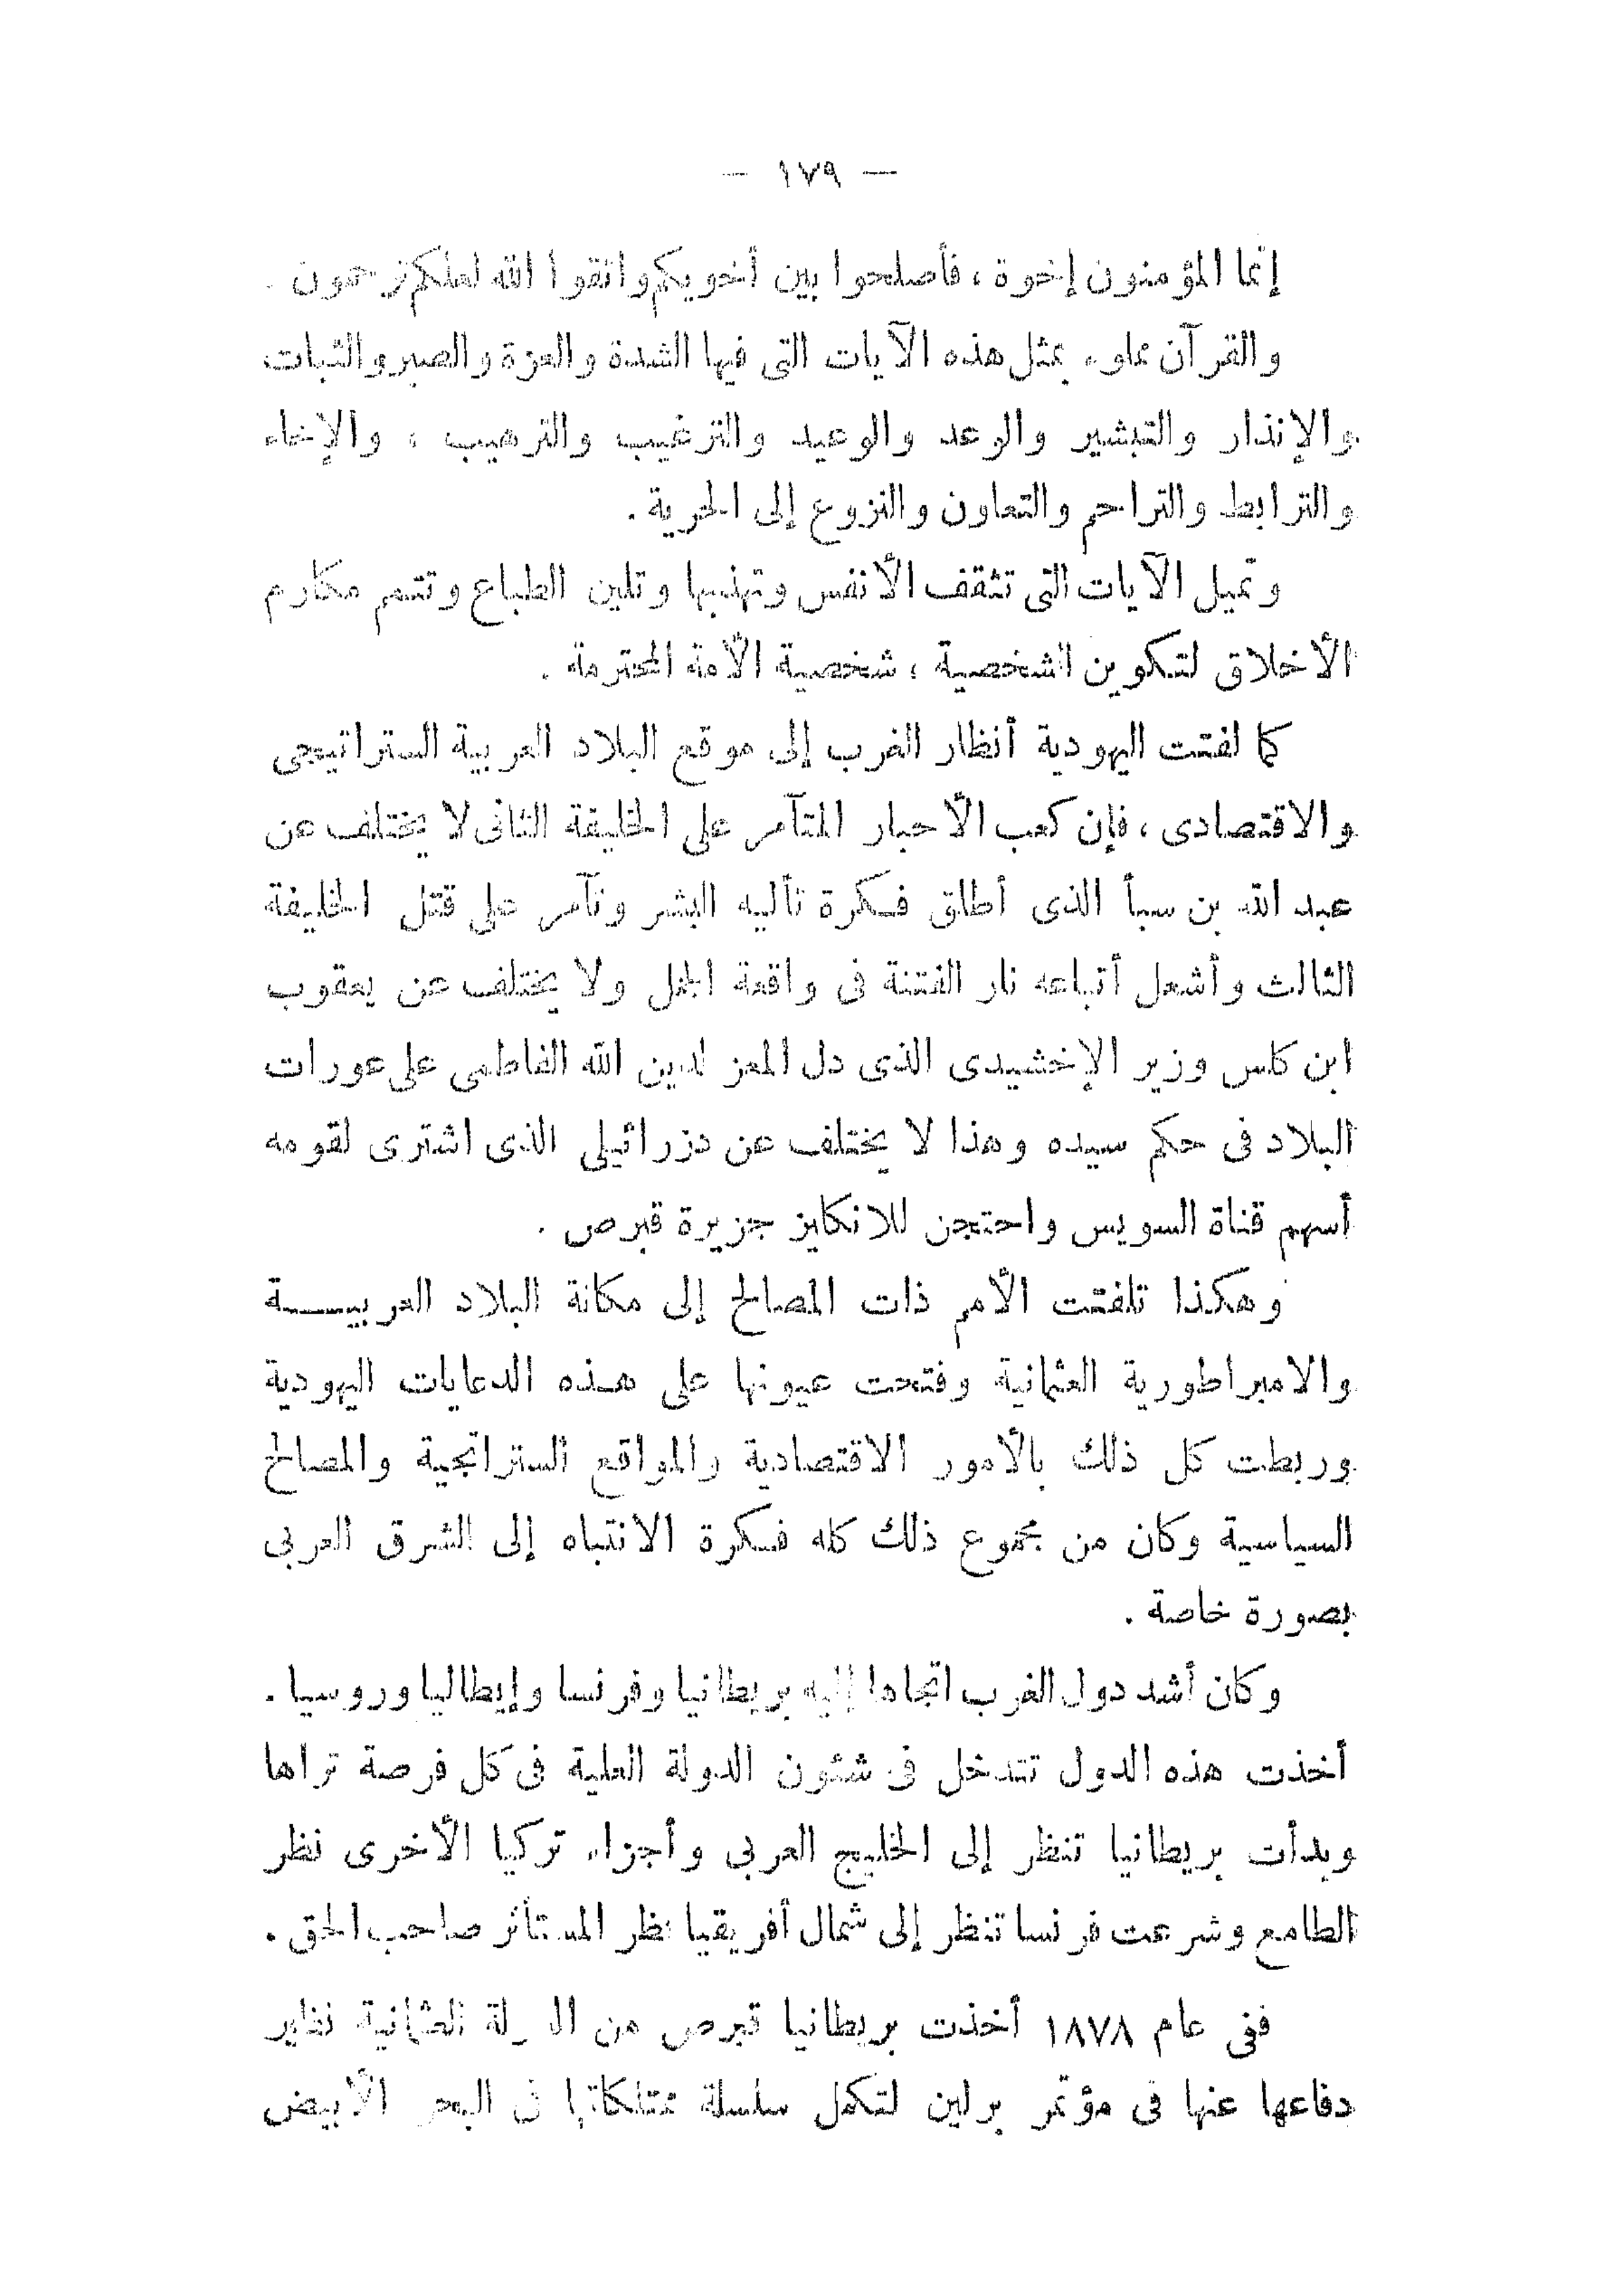 — ١٧٩ —
إنما المؤمنون إخوة ، فأصلحوا بين أخويكم واتقوا الله لعلكم ترحمون .
والقرآن مملوء بمثل هذه الآيات التى فيها الشدة والعزة والصبر والثبات
والإنذار والتبشير والوعد والوعيد والترغيب والترهيب ، والإخاء
والترابط والتراحم والتعاون والنزوع إلى الحرية .
وتميل الآيات التى تثقف الأنفس وتهذبها وتلين الطباع وتتمم مكارم
الأخلاق لتكوين الشخصية ، شخصية الأمة المحترمة .
كما لفتت اليهودية أنظار الغرب إلى موقع البلاد العربية الستراتيجى
والاقتصادى ، فإن كعب الأحبار المتآمر على الخليفة الثانى لا يختلف عن
عبد الله بن سبأ الذى أطلق فكرة تأليه البشر وتآمر على قتل الخليفة
الثالث وأشعل أتباعه نار الفتنة فى واقعة الجمل ولا يختلف عن يعقوب
ابن كلس وزير الإخشيدى الذى دل المعز لدين الله الفاطمى على عورات
البلاد فى حكم سيده وهذا لا يختلف عن دزرائيلى الذى اشترى لقومه
أسهم قناة السويس واحتجن للانكليز جزيرة قبرص .
وهكذا تلفتت الأمم ذات المصالح إلى مكانة البلاد العربيـــة
والامبراطورية العثمانية وفتحت عيونها على هذه الدعايات اليهودية
وربطت كل ذلك بالأمور الاقتصادية والمواقع الستراتجية والمصالح
السياسية وكان من مجموع ذلك كله فكرة الانتباه إلى الشرق العربى
بصورة خاصة .
وكان أشد دول الغرب اتجاها إليه بريطانيا وفرنسا وإيطاليا وروسيا .
أخذت هذه الدول تتدخل فى شئون الدولة العلية فى كل فرصة تراها
وبدأت بريطانيا تنظر إلى الخليج العربى وأجزاء تركيا الأخرى نظر
الطامع وشرعت فرنسا تنظر إلى شمال أفريقيا نظر المستأثر صاحب الحق .
ففى عام ١٨٧٨ أخذت بريطانيا قبرص من الدولة العثمانية نظير
دفاعها عنها فى مؤتمر برلين لتكمل سلسلة ممتلكاتها فى البحر الأبيض